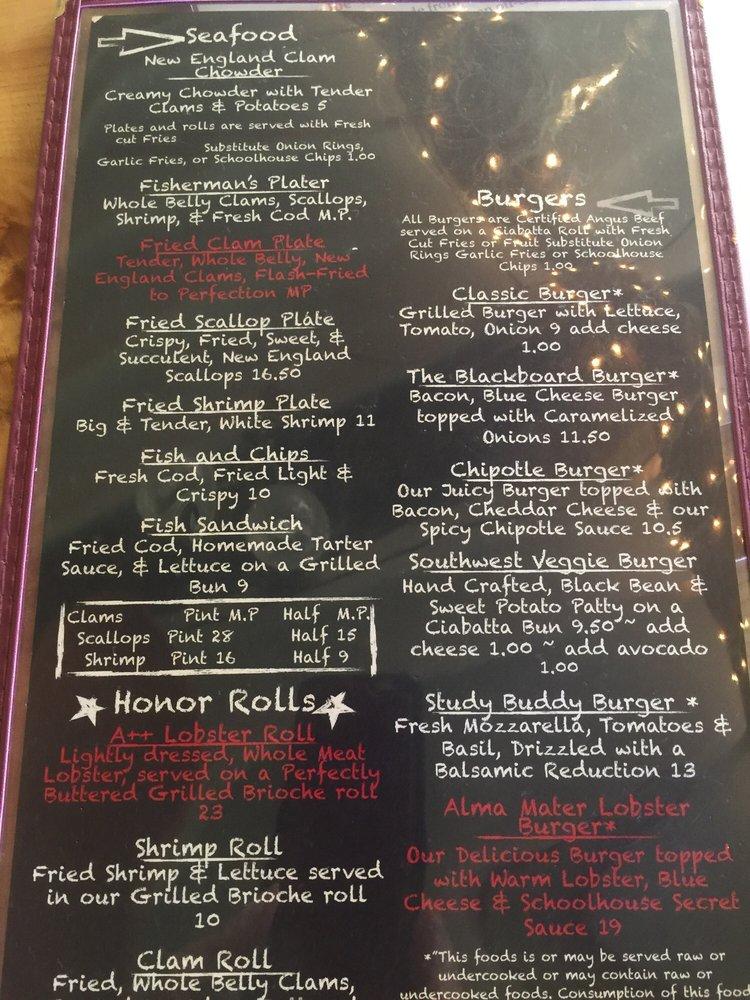 Seafood
New England Clam
Chowder
Creamy Chowder with Tender
Clams & Potatoes 5
Plates and rolls are served with Fresh
cut Fries
Substitute Onion Rings,
Garlic Fries, or Schoolhouse Chips 1.00
Fisherman's Plater
Whole Belly Clams, Scallops,
Shrimp, & Fresh Cod M.P.
Fried Clam Plate
Tender, Whole Belly, New
England Clams, Flash-Fried
to Perfection MP
Fried Scallop Plate
Crispy, Fried, Sweet, &
Succulent, New England
Scallops 16.50
Fried Shrimp Plate
Big & Tender, White Shrimp 11
Fish and Chips
Fresh Cod, Fried Light &
Crispy 10
Fish Sandwich
Fried Cod, Homemade Tarter
Sauce, & Lettuce on a Grilled
Bun 9
Clams Pint M.P Half M.P.
Scallops Pint 28 Half 15
Shrimp Pint 16 Half 9
Honor Rolls
A++ Lobster Roll
Lightly dressed, Whole Meat
Lobster, served on a Perfectly
Buttered Grilled Brioche roll
23
Shrimp Roll
Fried Shrimp & Lettuce served
in our Grilled Brioche roll
10
Clam Roll
Fried, Whole Belly Clams,
Burgers
All Burgers are Certified Angus Beef
served on a Ciabatta Roll with Fresh
Cut Fries or Fruit Substitute Onion
Rings Garlic Fries or Schoolhouse
Chips 1.00
Classic Burger*
Grilled Burger with Lettuce,
Tomato, Onion 9 add cheese
1.00
The Blackboard Burger*
Bacon, Blue Cheese Burger
topped with Caramelized
Onions 11.50
Chipotle Burger*
Our Juicy Burger topped with
Bacon, Cheddar Cheese & our
Spicy Chipotle Sauce 10.5
Southwest Veggie Burger
Hand Crafted, Black Bean &
Sweet Potato Patty on a
Ciabatta Bun 9.50 ~ add
cheese 1.00 ~ add avocado
1.00
Study Buddy Burger *
Fresh Mozzarella, Tomatoes &
Basil, Drizzled with a
Balsamic Reduction 13
Alma Mater Lobster
Burger*
Our Delicious Burger topped
with Warm Lobster, Blue
Cheese & Schoolhouse Secret
Sauce 19
*"This foods is or may be served raw or
undercooked or may contain raw or
undercooked foods. Consumption of this food